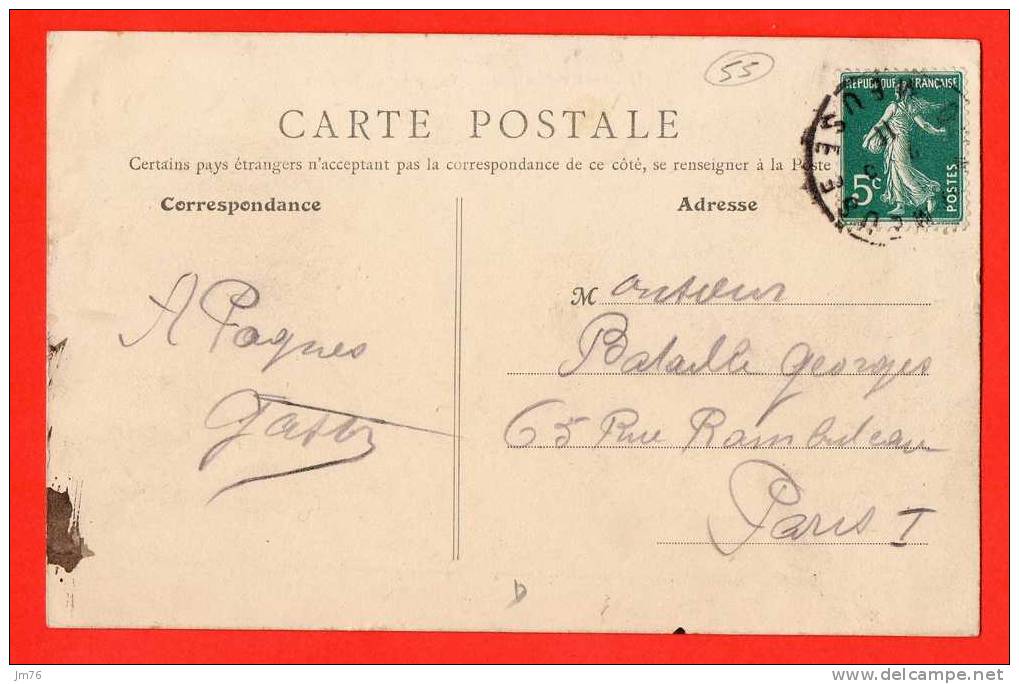 55
CARTE POSTALE
Certains pays étrangers n'acceptant pas la correspondance de ce côté, se renseigner à la Poste
RÉPUBLIQUE FRANÇAISE
5c
POSTES
MEUSE
Correspondance
Adresse
A Pagnes
Monsieur
Bataille Georges
65 Rue Rambuteau
Paris I
jm76
www.delcampe.net